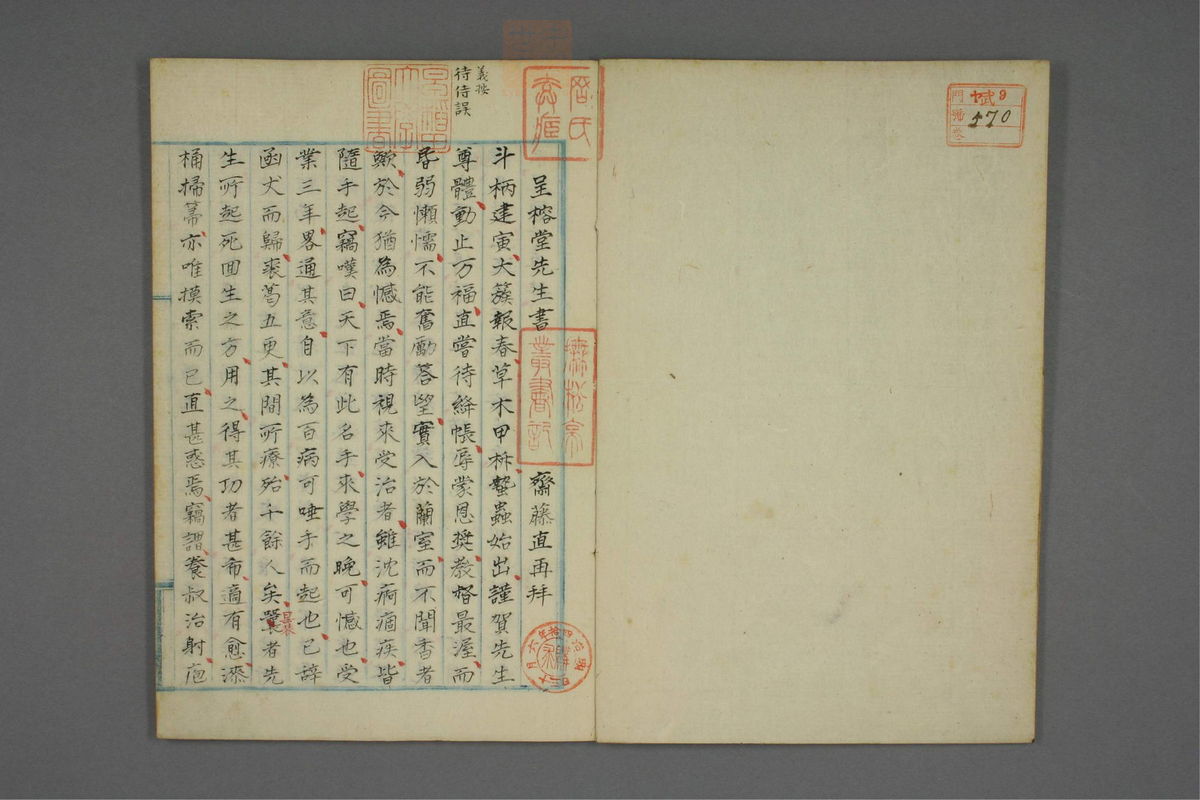 9
𢦏
570
門
號
卷
義按
待侍誤
呈榕堂先生書 齋藤直再拜
斗柄建寅大簇報春草木甲柝蟄蟲始出謹賀先生
尊體動止万福直嘗待絳帳辱蒙恩奬教督最渥而
昏弱懶懦不能奮勵答望實入於蘭室而不聞香者
歟於今猶為憾焉當時視來受治者雖沈痾痼疾皆
隨手起竊嘆曰天下有此名手來學之晚可憾也受
業三年畧通其意自以為百病可唾手而起也已辞
函丈而歸裘葛五更其間所療殆千餘人矣曩者先
生所起死回生之方用之得其功者甚希適有愈漆
桶掃箒亦唯摸索而已直甚惑焉竊謂養叔治射庖